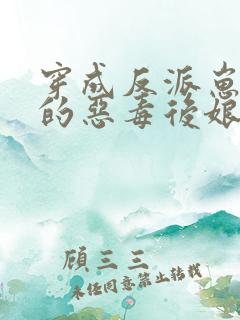 穿成反派崽
的惡毒後娘
顧三三
未经同意禁止转载